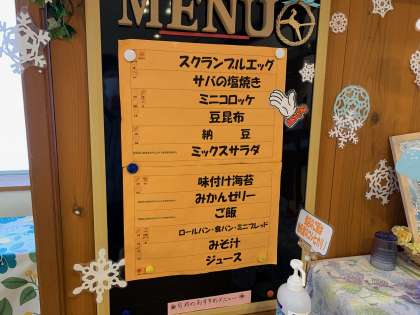 MENU
スクランブルエッグ
サバの塩焼き
ミニコロッケ
豆昆布
納 豆
ミックスサラダ
味付け海苔
みかんゼリー
ご飯
ロールパン・食パン・ミニブレッド
みそ汁
ジュース
今月のおすすめメニュー